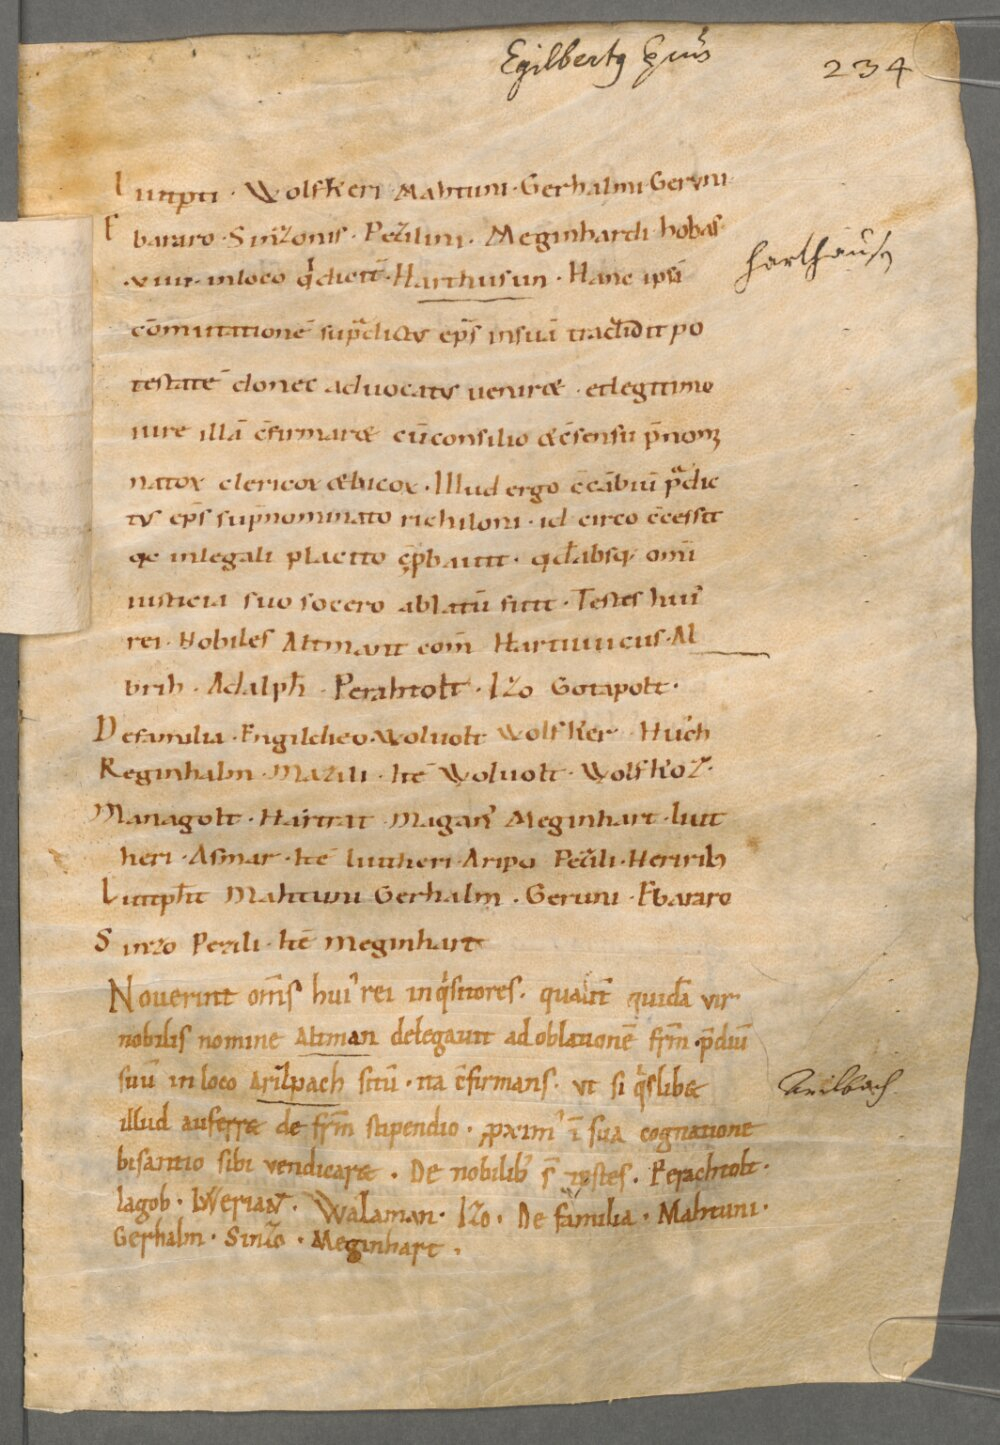 Egilbertꝰ Ep̃us
234
Liutp̃ti · Wolfkeri Mahtuni · Gerhalmi Geruni
Ebararo · Sinzonis · Pezilini · Meginhardi hobas
·xiiii· inloco q̇dicit̄ · Harthusun · Hanc ipsā
harthausn
cōmutationē sup̃dictus ep̄s insuā tradidit po
testatē donec aduocatus ueniræ · etlegitimo
iure illā c̄firmaræ cū consilio & c̄sensu p̄nomi
natoꝝ clericoꝝ & laicoꝝ · Illud ergo c̄cābiū p̃dic
tus ep̄s sup̄nominato richiloni · id circo c̄cessit
qc inlegali placito c̄p̱bauit · qđ absq; om̄i
iusticia suo socero ablatū sitt · Testes huiꝰ
rei · Nobiles Altmann com̄ Hartuuicus · Al
brih · Adalph̄ · Perahtolt · Izo Gotapolt ·
Defamilia · Engildieo · Woluolt Wolfker · Hucħ
Reginhalm · Mazili · Itē Woluolt · Wolfkoz ·
Managolt · Hartrat · Maganꝰ Meginhart · Liut
heri · Asmar · Itē Liutheri · Aripo Pezili · Heririh
Liutpħt Mahtuni Gerhalm · Geruni · Ebararo
Sinzo Pezili · Itē Meginhart
Nouerint om̄s huiꝰ rei inq̇sitores · qualit̄ quidā vir
nobilis nomine Altman delegauit ad oblationē fr̄m · p̄diū
suū in loco Arilpach sitū · ita c̄firmans · vt si q̇slib&
Arilbach
illud auferr& de fr̄m stipendio · ꝓximꝰ ī sua cognatione
bisantio sibi vendicar& · De nobilibꝰ s̄ testes · Perachtolt ·
Iagob · Werianꝰ · Walaman · Izo · De familia · Mahtuni ·
Gerhalm · Sinzo · Meginhart ·